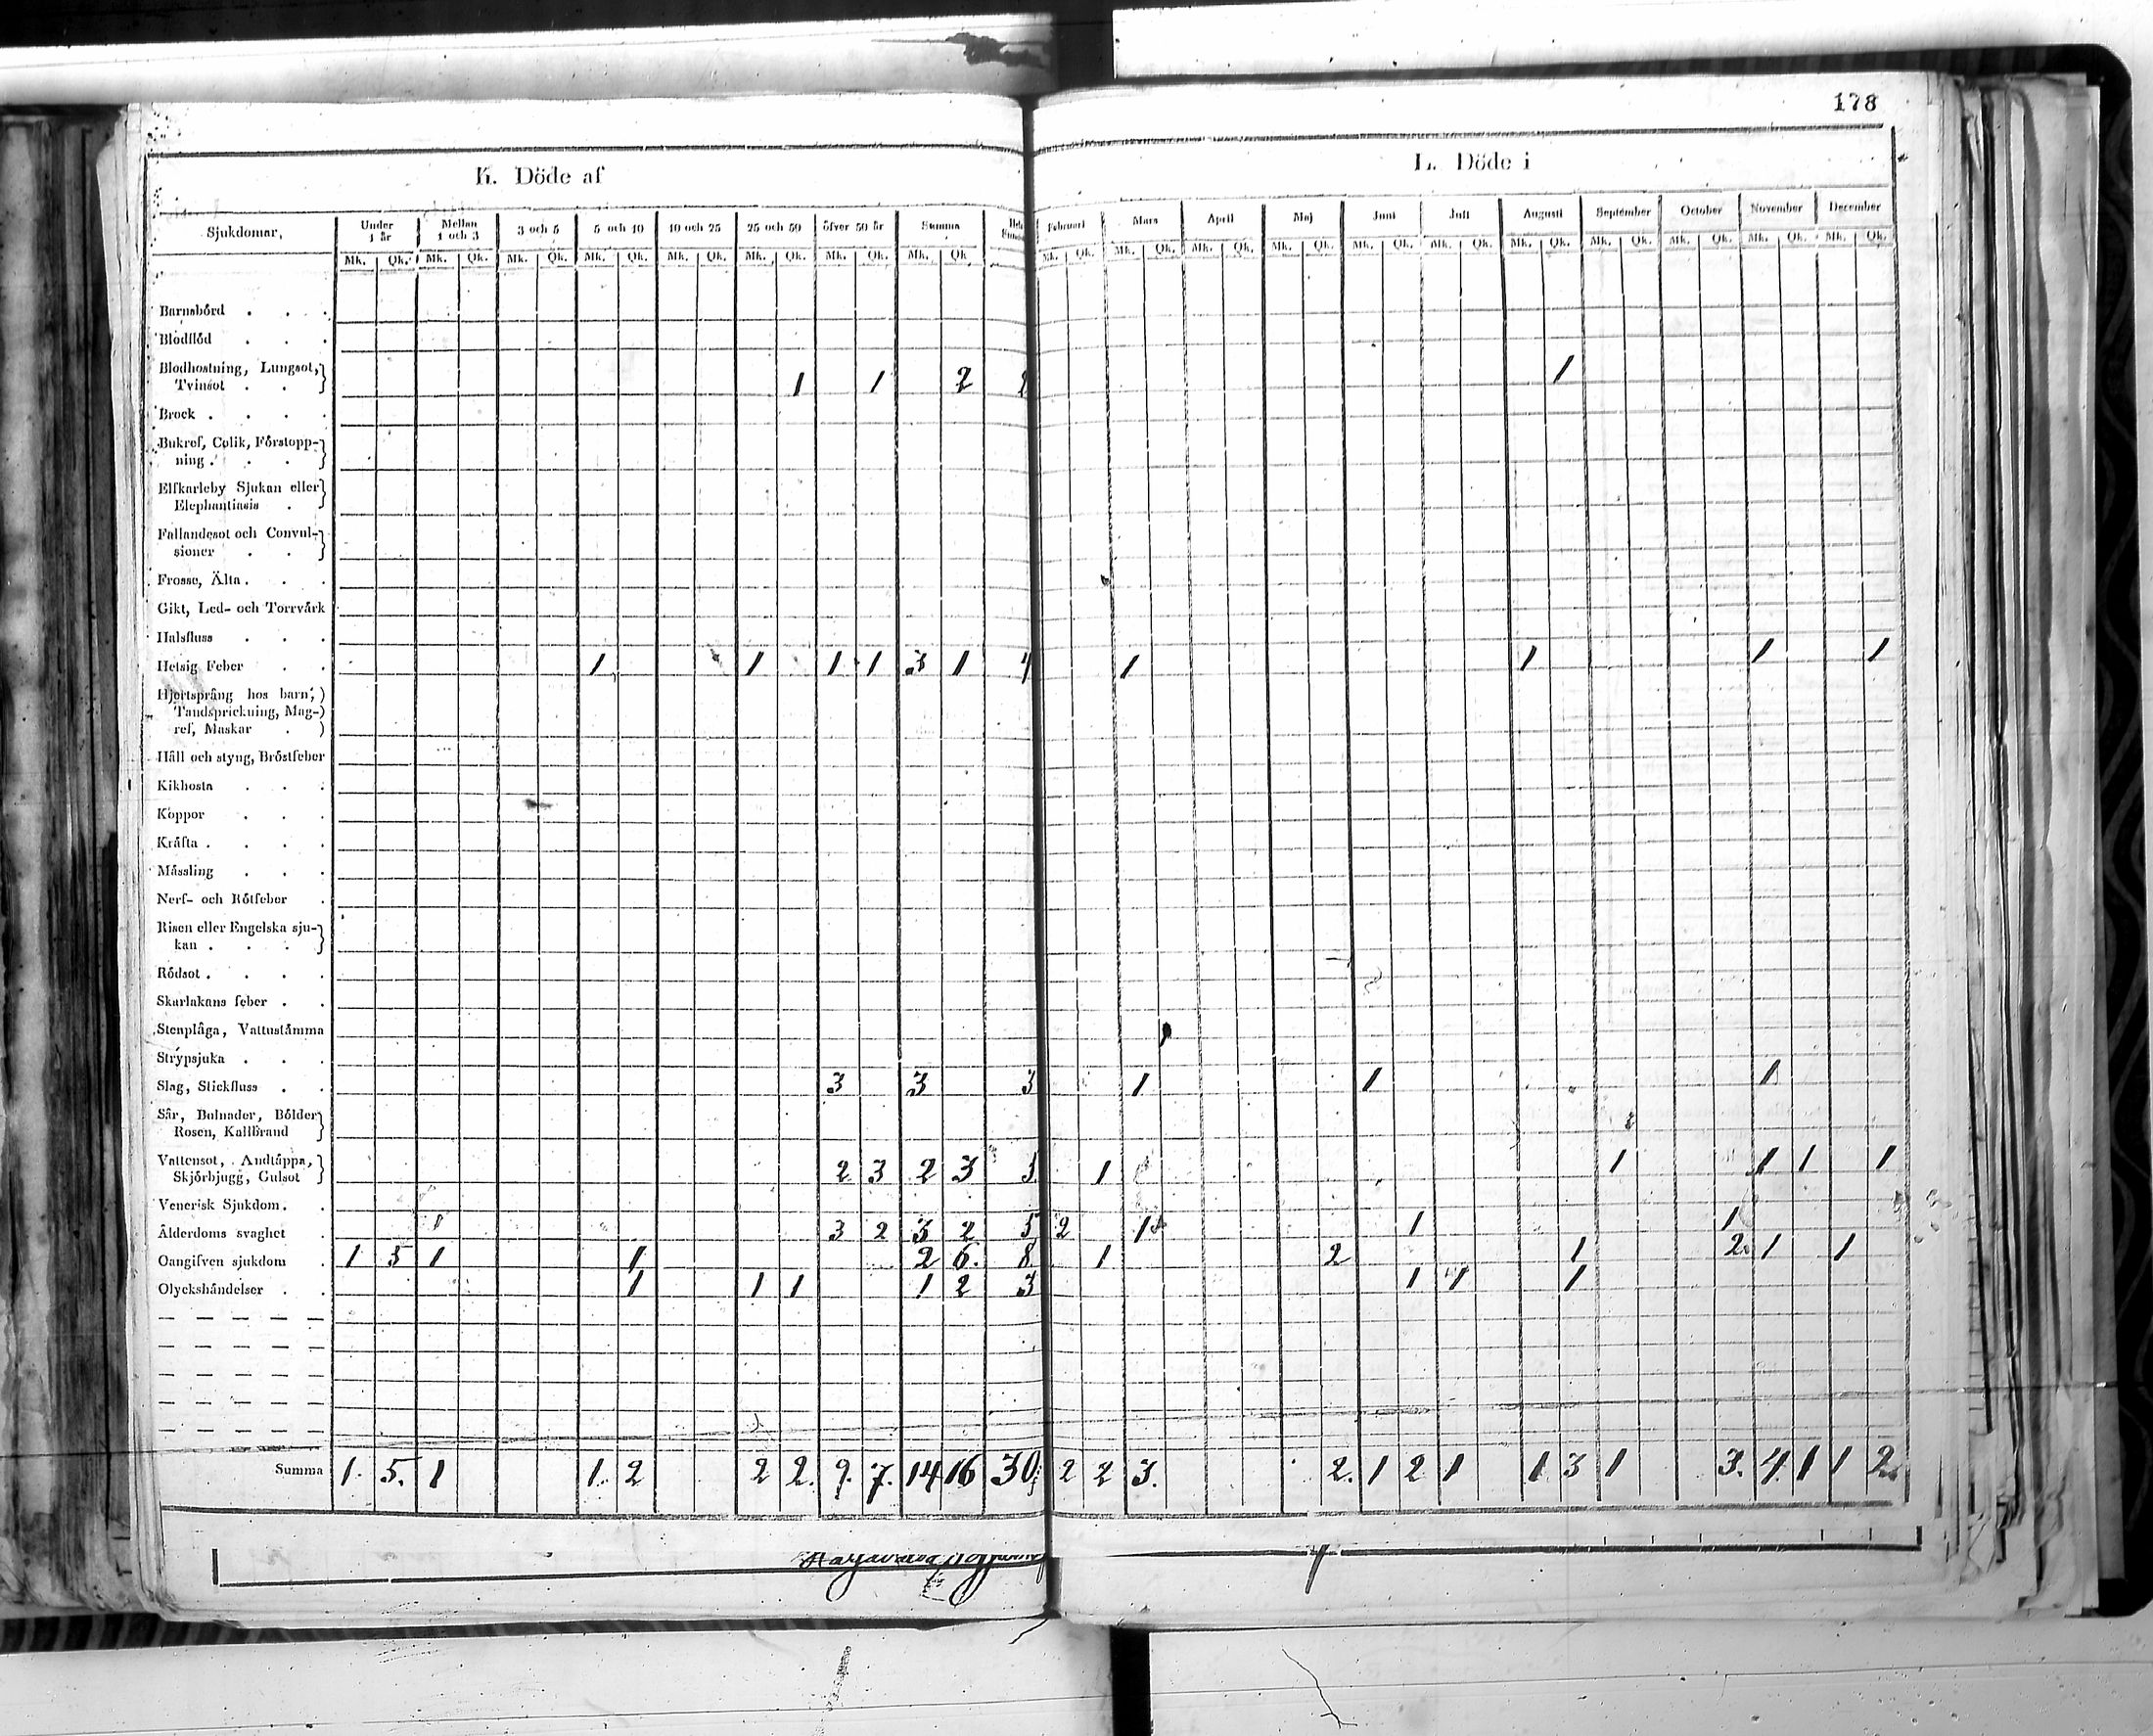 178
K. Döde af
L. Döde i
Sjukdomar, Under 1 år Mellan 1 och 3 3 och 5 5 och 10 10 och 25 25 och 50 öfver 50 år Summa
Februari Mars April Maj Juni Juli Augusti September October November December
Mk. Qk. Mk. Qk. Mk. Qk. Mk. Qk. Mk. Qk. Mk. Qk. Mk. Qk. Mk. Qk.
Mk. Qk. Mk. Qk. Mk. Qk. Mk. Qk. Mk. Qk. Mk. Qk. Mk. Qk. Mk. Qk. Mk. Qk. Mk. Qk. Mk. Qk.
Barnsbörd . . .
Blodflöd . . .
Blodhostning, Lungsot,
Tvinsot . . 1 1 2 2 1
Brock . . . .
Bukref, Colik, Förstopp-
ning . . .
Elfkarleby Sjukan eller
Elephantiasis .
Fallandesot och Convul-
sioner . .
Frossa, Älta . . .
Gikt, Led- och Torrvärk
Halsfluss . . .
Hetsig Feber . . 1 1 1 1 3 1 4 1 1 1 1
Hjertsprång hos barn,
Tandsprickning, Mag-
ref, Maskar .
Håll och styng, Bröstfeber
Kikhosta . . .
Koppor . . .
Kräfta . . . .
Mässling . . .
Nerf- och Rötfeber .
Risen eller Engelska sju-
kan . . .
Rödsot . . . .
Skarlakans feber . .
Stenplåga, Vattustämma
Strypsjuka . . .
Slag, Stickfluss . . 3 3 3 1 1 1
Sår, Bulnader, Bölder
Rosen, Kallbrand
Vattensot, Andtäppa,
Skjörbjugg, Gulsot 2 3 2 3 5 1 1 1 1 1
Venerisk Sjukdom . .
Ålderdoms svaghet . 3 2 3 2 5 2 1 1 1
Oangifven sjukdom . 1 5 1 1 2 6. 8 1 2 1 2. 1 1
Olyckshändelser . . 1 1 1 1 2 3 1 1 1
Summa 1. 5. 1 1. 2 2 2. 9. 7. 14 16 30 2 2 3. 2. 1 2 1 1 3 1 3. 4. 1 1 2.